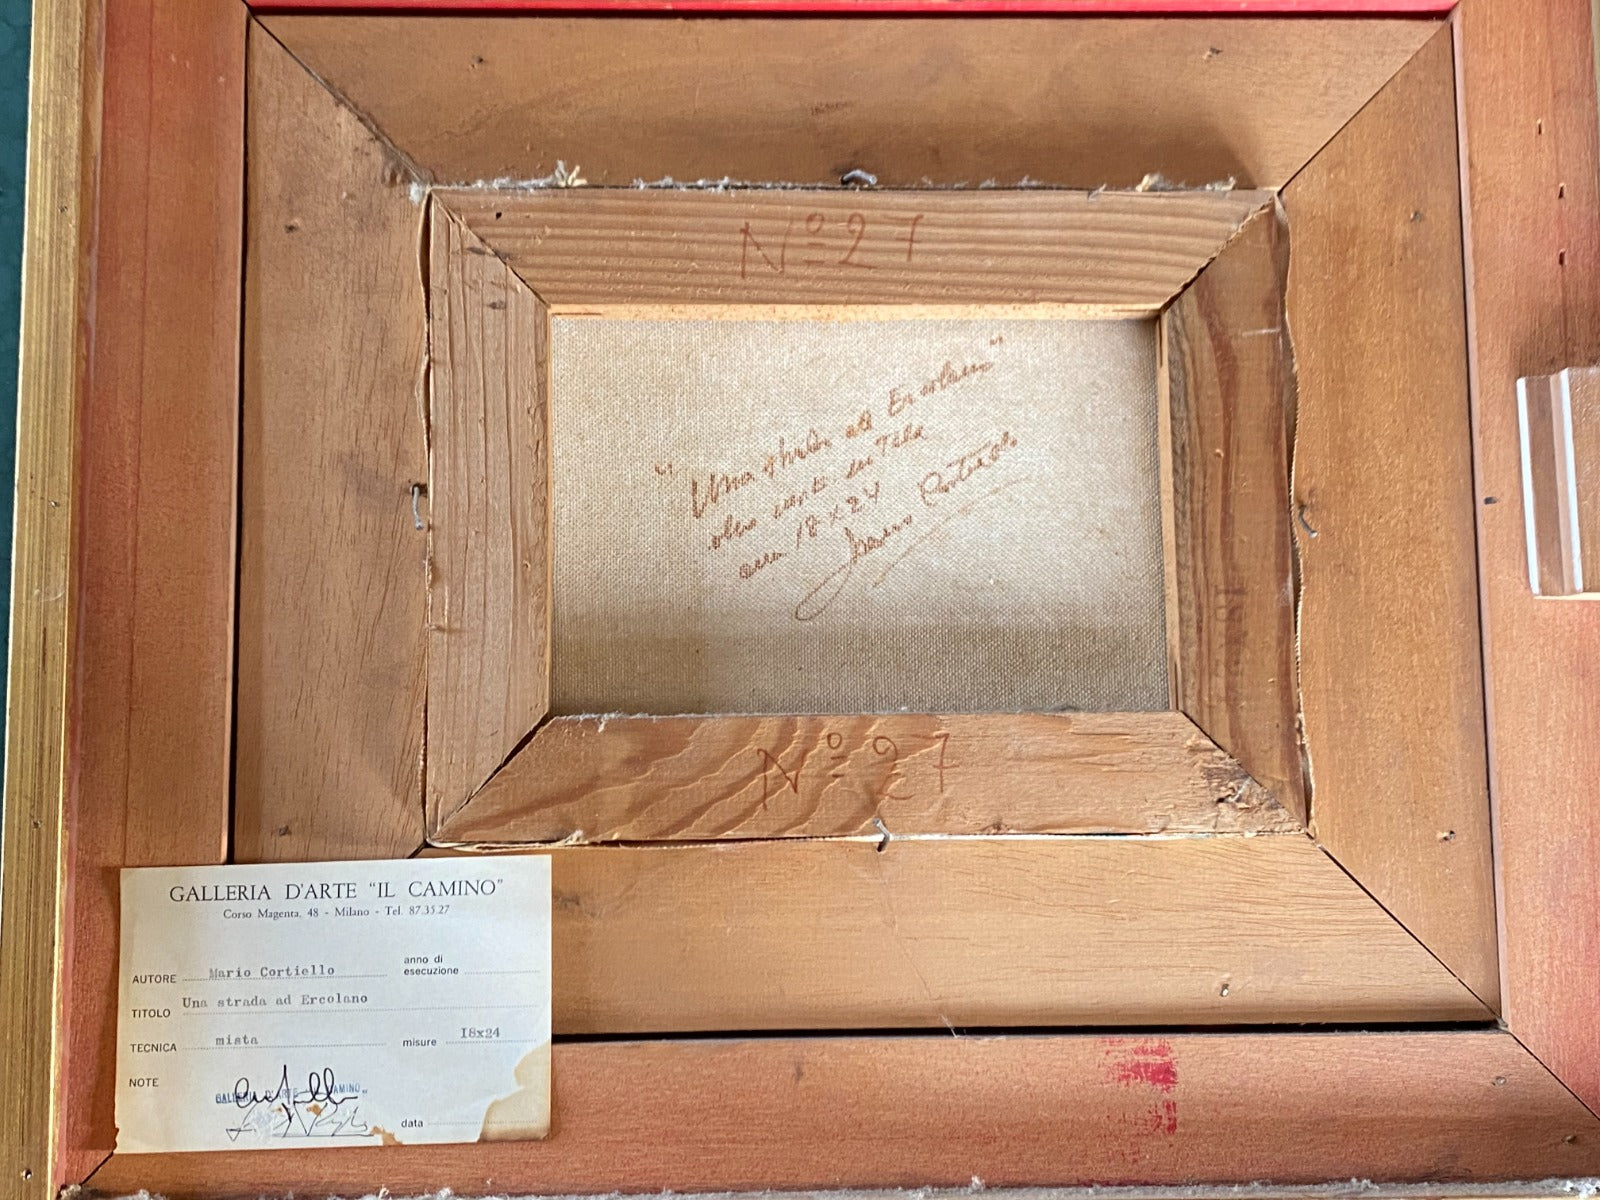 Nº 27
"Una strada ad Ercolano"
olio su Tela
cm 18 x 24
Mario Cortiello
Nº 27
GALLERIA D'ARTE "IL CAMINO"
Corso Magenta, 48 - Milano - Tel. 87.35.27
AUTORE Mario Cortiello anno di esecuzione
TITOLO Una strada ad Ercolano
TECNICA mista misure I8x24
NOTE
GALLERIA D'ARTE "IL CAMINO"
data